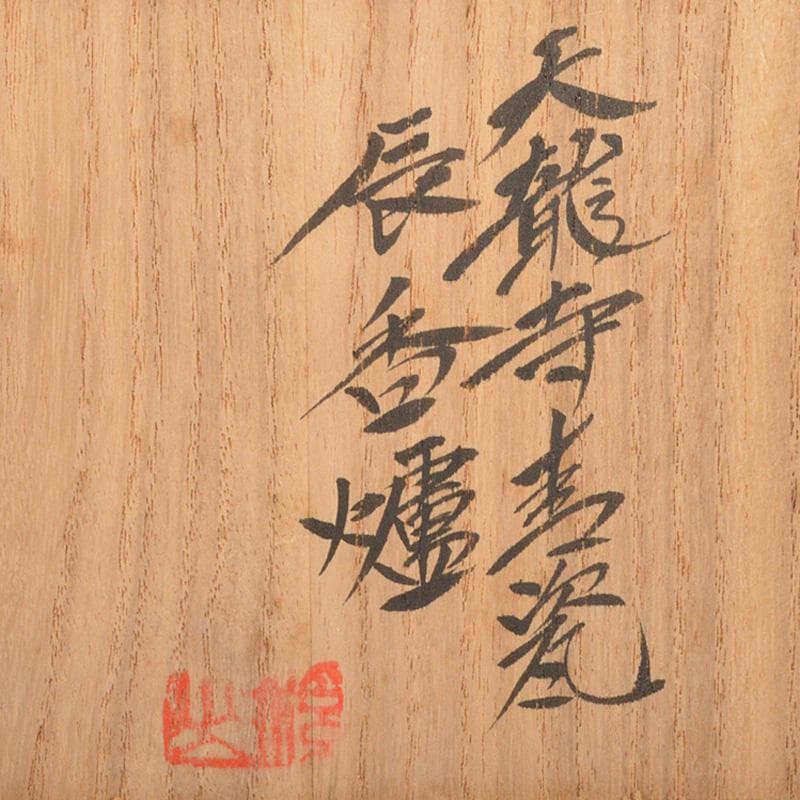 天龍寺青瓷
辰香爐